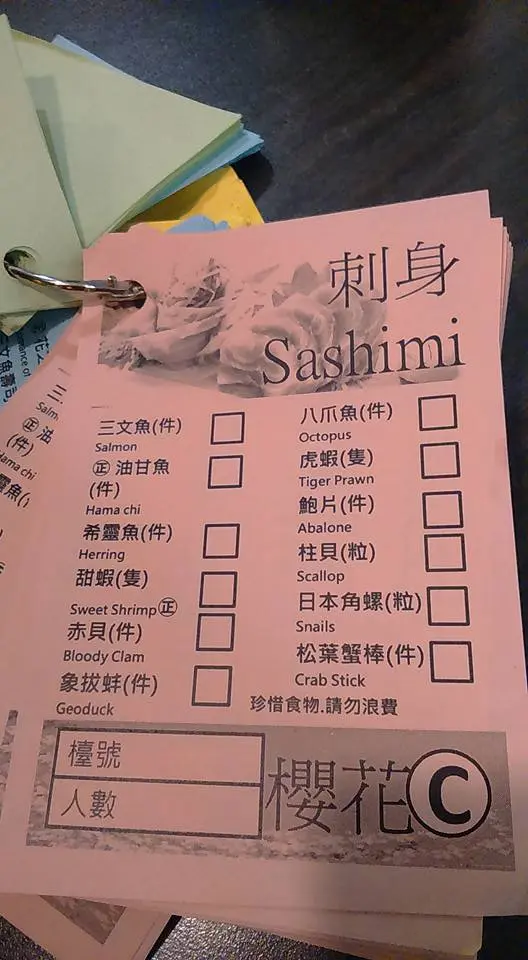 刺身
Sashimi
三文魚(件)
Salmon
㊣ 油甘魚
(件)
Hama chi
希靈魚(件)
Herring
甜蝦(隻)
Sweet Shrimp㊣
赤貝(件)
Bloody Clam
象拔蚌(件)
Geoduck
八爪魚(件)
Octopus
虎蝦(隻)
Tiger Prawn
鮑片(件)
Abalone
柱貝(粒)
Scallop
日本角螺(粒)
Snails
松葉蟹棒(件)
Crab Stick
珍惜食物.請勿浪費
檯號
人數
櫻花 C
三
Salm
㊣ 油
(件)
Hama chi
文魚壽司